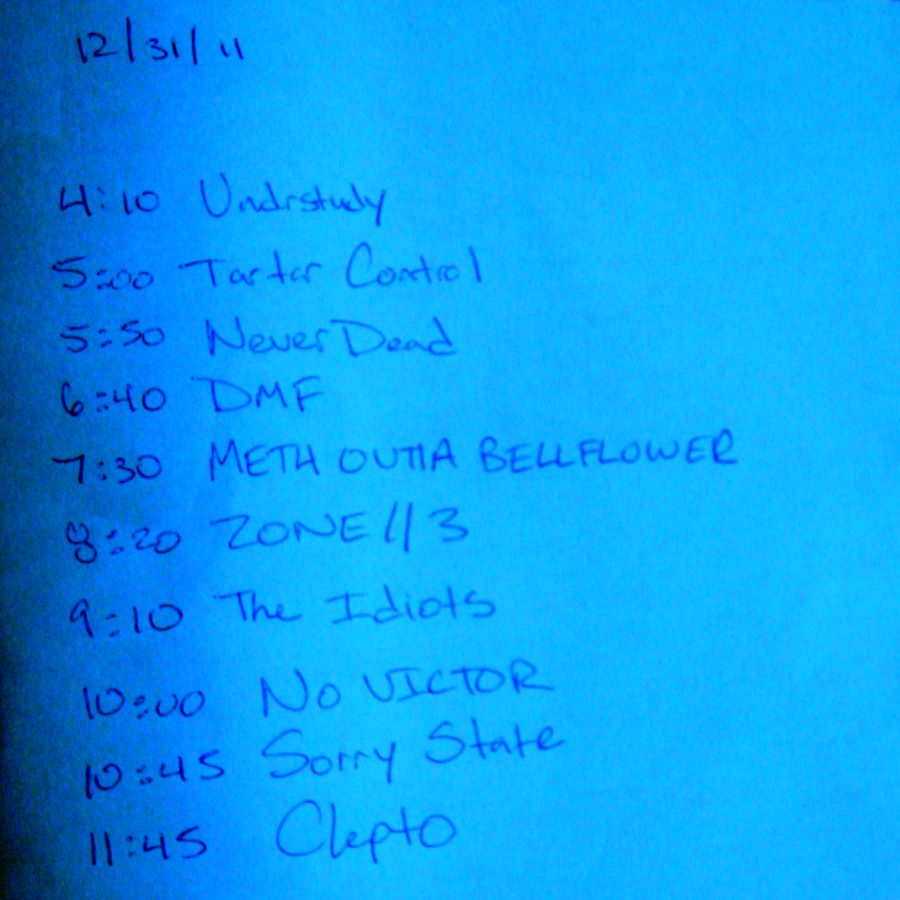 12/31/11
4:10 Undrstudy
5:00 Tarter Control
5:50 Never Dead
6:40 DMF
7:30 METH OUTTA BELLFLOWER
8:20 ZONE//3
9:10 The Idiots
10:00 No VICTOR
10:45 Sorry State
11:45 Clepto